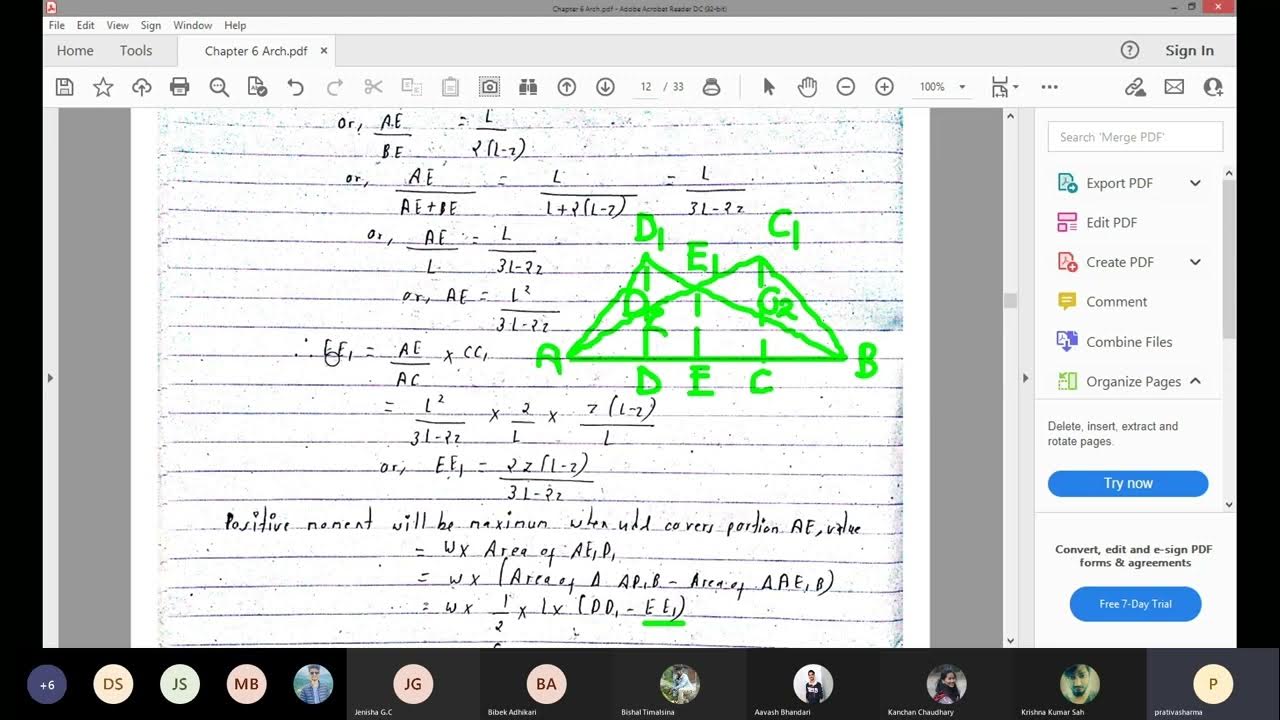 Chapter 6 Arch.pdf - Adobe Acrobat Reader DC (32-bit)
File Edit View Sign Window Help
Home Tools Chapter 6 Arch.pdf × Sign In
12 / 33 100%
or, AE/BE = L/2(L-z)
or, AE/AE+BE = L/L+2(L-z) = L/3L-2z
or, AE/L = L/3L-2z
or, AE = L²/3L-2z
∴ EE₁ = AE/AC × CC₁
= L²/3L-2z × 2/L × z(L-z)/L
or, EE₁ = 2z(L-z)/3L-2z
Positive moment will be maximum when udl covers portion AE, value
= w× Area of AE₁D₁
= w× (Area of Δ AD₁B - Area of Δ AE₁B)
= w× 1/2 × L× (DD₁ - EE₁)
D₁ C₁
E₁
C2
A B
D E C
Search 'Merge PDF'
Export PDF
Edit PDF
Create PDF
Comment
Combine Files
Organize Pages
Delete, insert, extract and
rotate pages.
Try now
Convert, edit and e-sign PDF
forms & agreements
Free 7-Day Trial
+6 DS JS MB JG BA P
Jenisha G.C Bibek Adhikari Bishal Timalsina Aavash Bhandari Kanchan Chaudhary Krishna Kumar Sah prativasharma